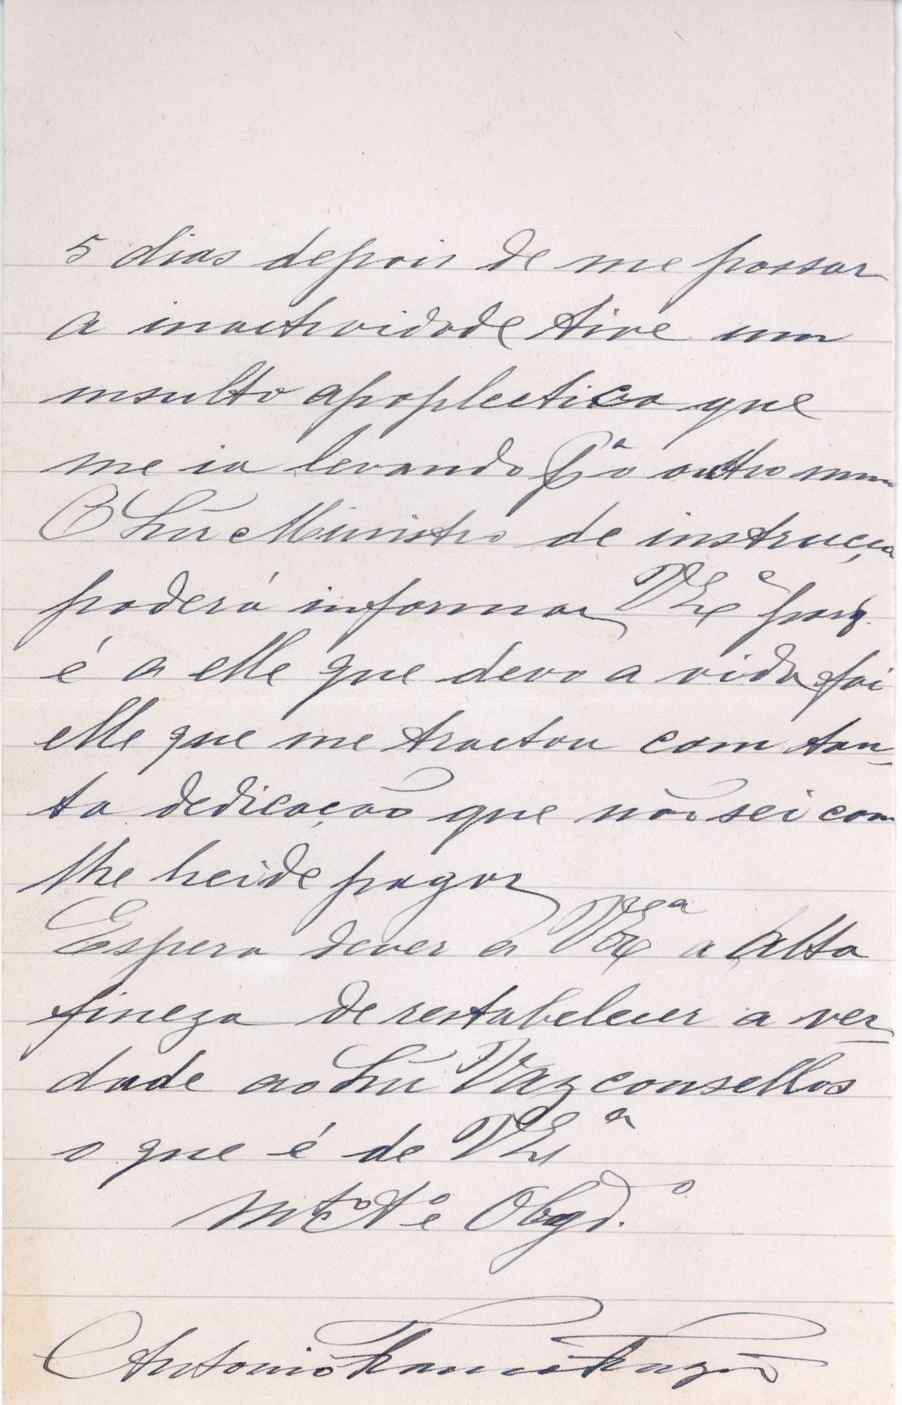 5 dias depois de me passar
a inactividade tive um
insulto apopletico que
me ia levando pª o outro mun
O Snr Ministro de instrucça
poderá informar V Exª porq.
é a elle que devo a vida foi
elle que me tractou com tan-
ta dedicação que não sei com
lhe hei de pagar
Espero dever a V Exª a alta
fineza de restabelecer a ver
dade ao Snr Vazconsellos
o que é de V Exª
Mtº Attº e Obgdº
Antonio